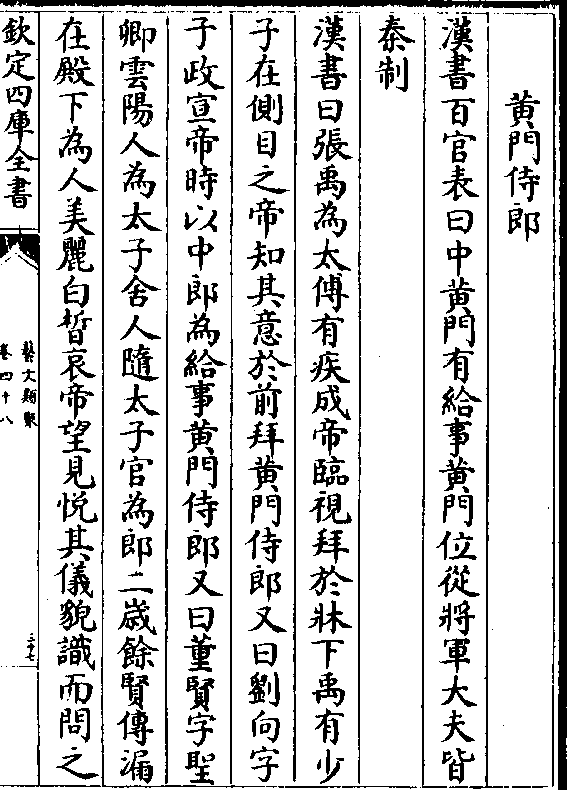 黄門侍郎
漢書百官表曰中黄門有給事黄門位從將軍大夫皆
秦制
漢書曰張禹為太傅有疾成帝臨視拜於牀下禹有少
子在側目之帝知其意於前拜黄門侍郎又曰劉向字
子政宣帝時以中郎為給事黄門侍郎又曰董賢字聖
卿雲陽人為太子舍人隨太子官為郎二歳餘賢傳漏
在殿下為人美麗白晳哀帝望見悦其儀貌識而問之
欽定四庫全書
藝文類聚
卷四十八
三十七